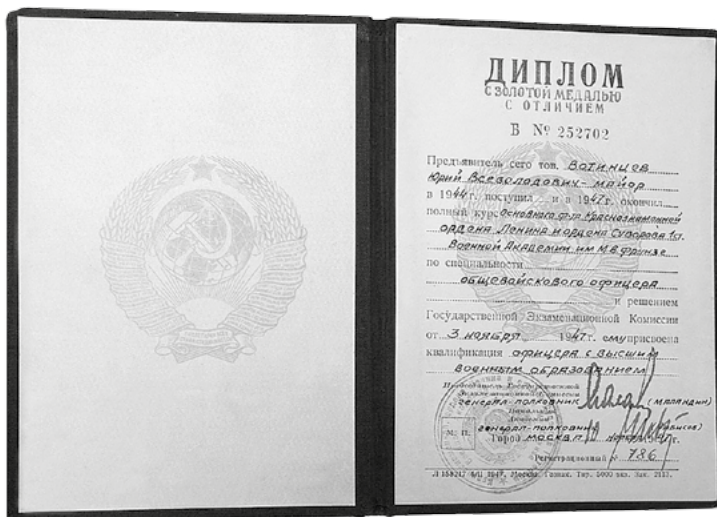 ДИПЛОМ
С ЗОЛОТОЙ МЕДАЛЬЮ
С ОТЛИЧИЕМ
Б № 252702
Предъявитель сего тов. Вотинцев
Юрий Всеволодович - майор
в 1944 г. поступил и в 1947 г. окончил
полный курс Основного ф-та Краснознаменной
ордена Ленина и ордена Суворова 1 ст.
Военной Академии им М.В. Фрунзе
по специальности
общевойскового офицера
и решением
Государственной Экзаменационной Комиссии
от 3 ноября 1947 г. ему присвоена
квалификация офицера с высшим
военным образованием
Председатель Государственной
Экзаменационной Комиссии
генерал-полковник (МАЛАНДИН)
Начальник
Академии
генерал-полковник
М. П.
Город Москва 10 г.
Регистрационный № 786
Москва. Гознак. 1947.